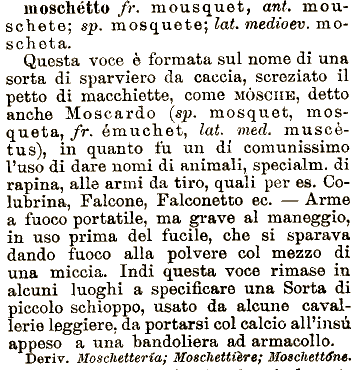 moschétto fr. mousquet, ant. mou-
schete; sp. mosquete; lat. medioev. mo-
scheta.
Questa voce è formata sul nome di una
sorta di sparviero da caccia, screziato il
petto di macchiette, come MÒSCHE, detto
anche Moscardo (sp. mosquet, mos-
queta, fr. émuchet, lat. med. muscè-
tus), in quanto fu un dí comunissimo
l'uso di dare nomi di animali, specialm. di
rapina, alle armi da tiro, quali per es. Co-
lubrina, Falcone, Falconetto ec. — Arme
a fuoco portatile, ma grave al maneggio,
in uso prima del fucile, che si sparava
dando fuoco alla polvere col mezzo di
una miccia. Indi questa voce rimase in
alcuni luoghi a specificare una Sorta di
piccolo schioppo, usato da alcune caval-
lerie leggiere, da portarsi col calcio all'insú
appeso a una bandoliera ad armacollo.
Deriv. Moschettería; Moschettière; Moschettóne.